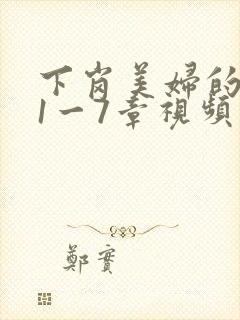 下岗美婦的
1一7章視頻
鄭實